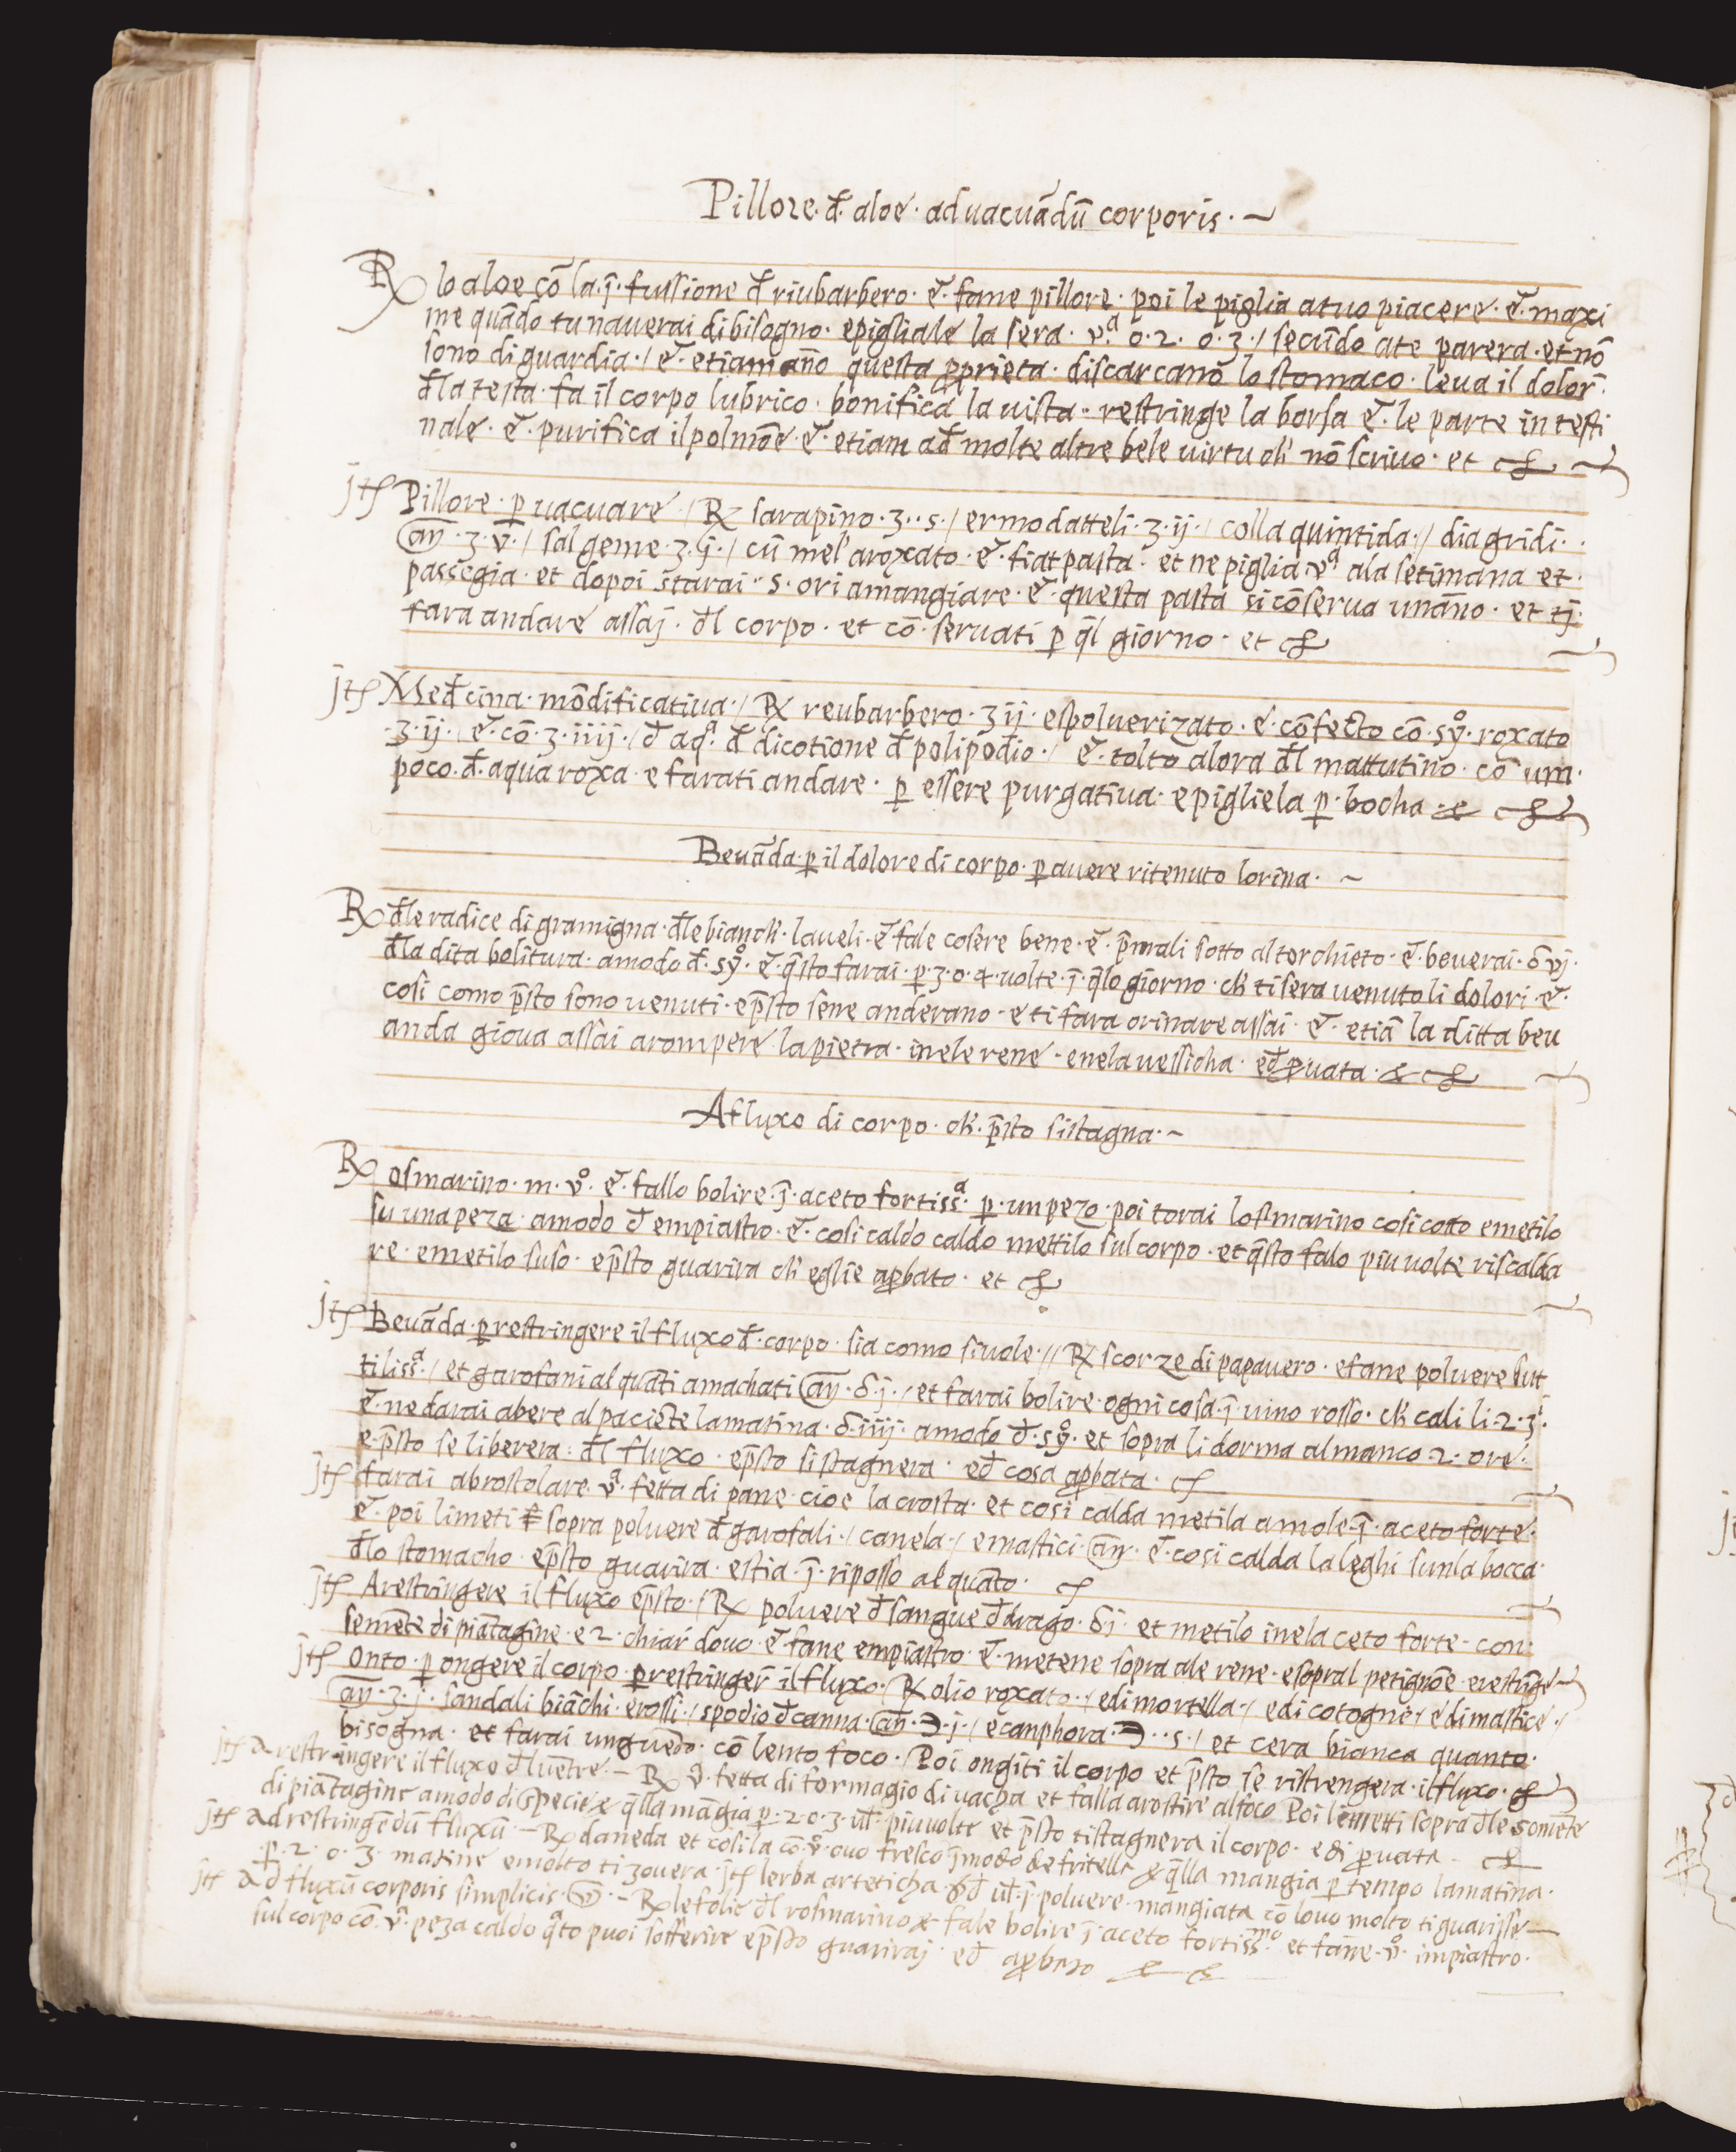 Pillore · đ · aloe · ad uacuãdũ corporis · ~
Rx lo aloe cõ la · ĩ · fussione đ riubarbero · e · fane pillore · poi le piglia a tuo piacere · e · maxi
me quãdo tu naverai di bisogno · e pigliale la sera · vª · o · 2 · o · 3 · / secũdo a te parera · et nõ
sono di guardia · / e · etiam anño questa pprieta · discarcanõ lo stomaco · leva il dolor̃ ·
đla testa · fa il corpo lubrico · bonifica la vista · restringe la borsa e · le parte in testi
nale · e · purifica il polmõe · e · etiam ađ molte altre bele virtu ch̃ nõ scrivo · et
jtẽ Pillore · p̱ uacuare / Rx sarapino · ʒ · s · / ermodatteli · ʒ · ij · / colla quintida · // diagridi ·
añ · ʒ · v · / sal geme · ʒ · j · / cũ mel aroxato · e · fiat pasta · et ne piglia vª ala setimana et ·
passegia · et dopoi starai · s · ori a mangiare · e · questa pasta si cõserva un anño · et tj ·
fara andare assaj · đl corpo · et cõ · servati p̱ q̃l giorno · et
jtẽ Međcina · mõdificativa · / Rx reubarbero · ʒ ij · e spolverizato · e · cõfecto cõ · sy̆º · roxato
· ʒ · ij · / e · cõ · ʒ · iiij · / đ aqª · đ dicotione đ polipodio · / e · tolto alora đl mattutino · cõ um ·
poco · đ · aqua roxa · e farati andare · p̱ essere purgativa · e pigliela p̱ · bocha
Bevãda · p̱ il dolore di corpo · p̱ avere ritenuto lorina · ~
Rx đle radice di gramigna · đle bianch̃ · laveli · e fale cosere bene · e · p̃mali sotto al torchieto · e · beverai · δ vj ·
đla dita bolitura · a modo đ · sy̆º · e · q̃sto farai · p̱ · 3 · o · 4 · volte · ĩ · q̃lo giorno · ch̃ ti sera venuto li dolori · e ·
cosi como p̃sto sono venuti · e p̃sto sene anderano · e ti fara orinare assai · e · etiã la ditta bev
anda giova assai a rompere · la pietra · inele rene · e nela vessicha · eđ puata ·
A fluxo di corpo · ch̃ · p̃sto si stagna · ~
Rx osmarino · m · vº · e · fallo bolire · ĩ · aceto fortissª · p̱ · un pezo · poi torai losmarino cosi cotto e metilo
su una peza · a modo đ empiastro · e · cosi caldo caldo mettilo sul corpo · et q̃sto falo piu volte riscalda
re · e metilo suso · e p̃sto guarira ch̃ eglie apbato · et
jtẽ Bevãda · p̱ restringere il fluxo đ · corpo · sia como si vole · // Rx scorze di papavero · e fane polvere sut
tilissª · / et garofani al quãti amachati añ · δ · j · / et farai bolire · ogni cosa · ĩ · vino rosso · ch̃ cali li · 2 · 3ⁱ ·
e · ne darai a bere al paciẽte la matina · δ · iiij · a modo đ · sy̆º · et sopra li dorma al manco · 2 · ore ·
e · p̃sto se liberera · đl fluxo · e p̃sto si stagnera · eđ cosa apbata ·
jtẽ farai abrostolare · vª · fetta di pane · cioe la crosta · et cosi calda metila a mole · ĩ · aceto forte ·
e · poi li meti sopra polvere đ garofali · / canela · / e mastici · añ · e · cosi calda la leghi sun la bocca ·
đlo stomacho · e p̃sto guarira · e stia · ĩ · riposso al quãto ·
jtẽ A restringere il fluxo e p̃sto · / Rx polvere đ sangue đ drago · δ j · et metilo inela ceto forte · con ·
semẽte di piãtagine · e 2 · chiar̃ dovo · e fane empiastro · e · metene sopra ale rene · e sopral petignõe · e restrĩge
jtẽ Onto · p̱ ongere il corpo · p̱ restringer̃ il fluxo · / Rx olio roxato · / e di mortella · / e di cotogne · / e di mastice · /
añ · ʒ · j · sandali biãchi · e rossi · / spodio đ canna · añ · ℈ · j · / e canphora · ℈ · s · / et cera bianca quanto ·
bisogna · et farai unguẽdo · cõ lento foco · / Poi ongiti il corpo et p̃sto se ristrengera · il fluxo ·
jtẽ A restringere il fluxo đl vẽtre · – Rx v̊ · fetta di formagio di vacha et falla arostire al foco Poi le metti sopra đle somẽte
di piãtagine a modo di specie & q̃lla mãgia p̱ · 2 · o · 3 · vl̃t · piu volte et p̃sto ti stagnera il corpo · e di p̱vata
jtẽ Ad restringẽdũ fluxũ · – Rx daneda et cosi la cõ · vº · ovo fresco ĩ modo de fritella & q̃lla mangia p̱ tempo la matina ·
· p̱ · 2 · o · 3 · matine e molto ti zovera · jtẽ lerba arteticha · ĩ · polvere · mangiata cõ lovo molto ti guarisse –
jtẽ Ad fluxũ corporis simplicis · – Rx le folie đl rosmarino & fale bolire ĩ aceto fortissᵐº · et fane · vº · impiastro ·
sul corpo cõ · vª · peza caldo q̃to puoi sofferire e p̃sto guariraj · eđ apbato